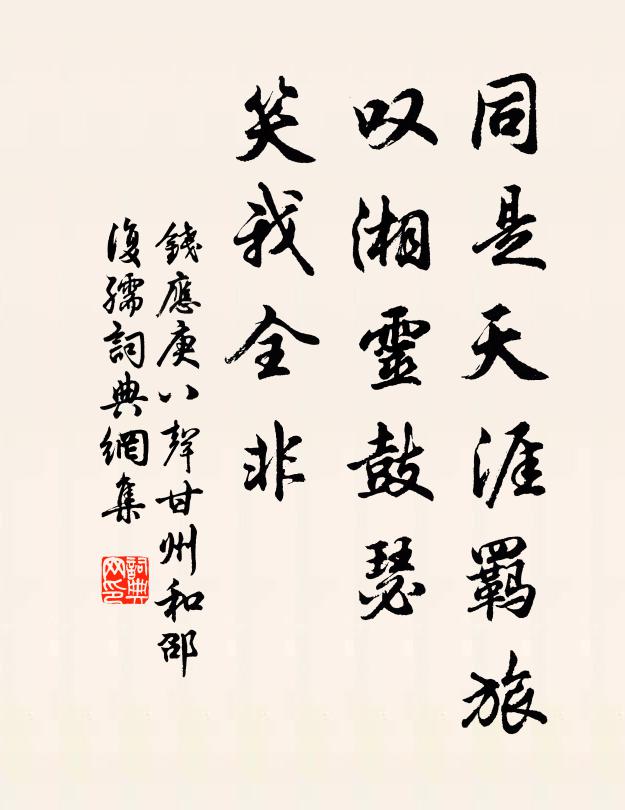 同是天涯羈旅
叹湘靈鼓瑟
笑我全非
錢應庚八聲甘州和邵
復孺詞典網集
詞典网印